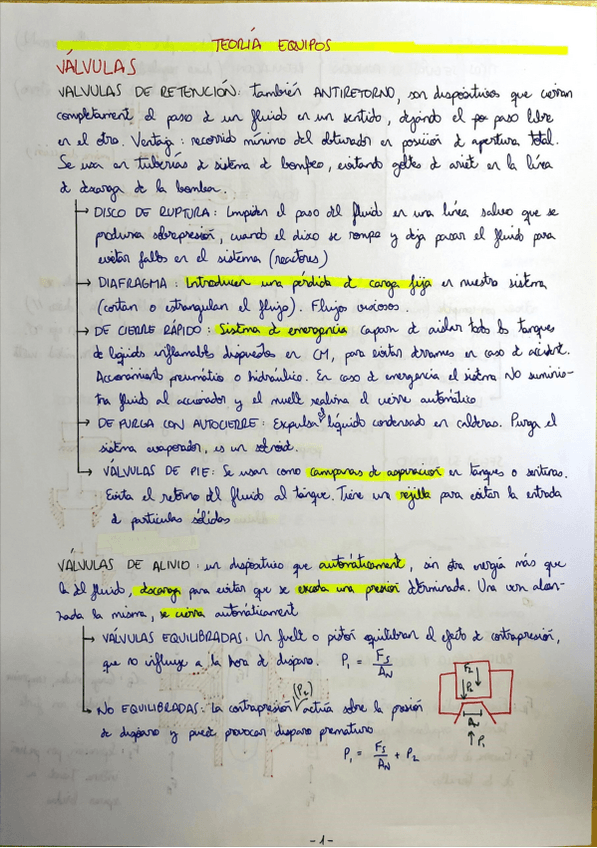 TEORÍA EQUIPOS
VÁLVULAS
VALVULAS DE RETENCIÓN: también ANTIRETORNO, son dispositivos que cierran
completament el paso de un fluido en un sentido, dejando el paso libre
en el otro. Ventaja: recorrido mínimo del obturador en posición de apertura total.
Se usa en tuberías de sistema de bombeo, evitando golpes de ariet en la línea
de descarga de la bomba.
→ DISCO DE RUPTURA: Impiden el paso del fluido en una línea salvo que se
produzca sobrepresión, cuando el disco se rompe y deja pasar el fluido para
evitar fallos en el sistema (reactores)
→ DIAFRAGMA: Introducen una pérdida de carga fija en nuestro sistema
(cortan o estrangulan el flujo). Flujos viscosos.
→ DE CIERRE RÁPIDO: Sistema de emergencia capaz de aislar todo los tanques
de líquido inflamable dispuestos en CM, para evitar derrames en caso de accident.
Accionamiento neumático o hidráulico. En caso de emergencia el sistema NO suminis-
tra fluido al accionador y el muelle realiza el cierre automático
→ DE PURGA CON AUTOCIERRE: Expulsa el líquido condensado en calderas. Purga el
sistema evaporador, es un
→ VÁLVULAS DE PIE: Se usan como campanas de aspiración en tanques o sentinas.
Evita el retorno del fluido al tanque. Tiene una rejilla para evitar la entrada
de partículas sólidas
VÁLVULAS DE ALIVIO: un dispositivo que automáticament, sin otra energía más que
la del fluido, descarga para evitar que se exceda una presión determinada. Una vez alcan-
zada la misma, se cierra automáticament
→ VÁLVULAS EQUILIBRADAS: Un fuelle o pistón equilibran el efecto de contrapresión,
que no influye a la hora de disparo. P₁ = Fs/AN
→ NO EQUILIBRADAS: la contrapresión (P₂) actúa sobre la presión
de disparo y puede provocar disparo prematuro
P₁ = Fs/AN + P₂
P₂
AN
P₁
-1-